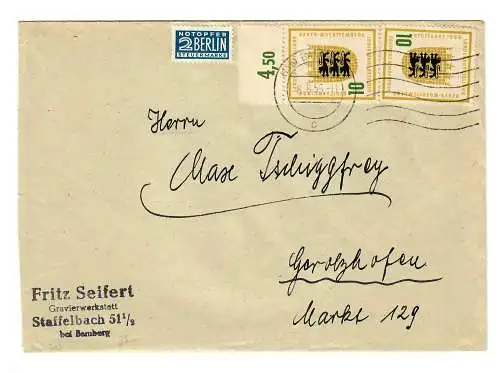 NOTOPFER
2 BERLIN
STEUERMARKE
4,50
10
10
Herrn
Max Tschiggfrey
Gerolzhofen
Markt 129
Fritz Seifert
Gravierwerkstatt
Staffelbach 51½
bei Bamberg